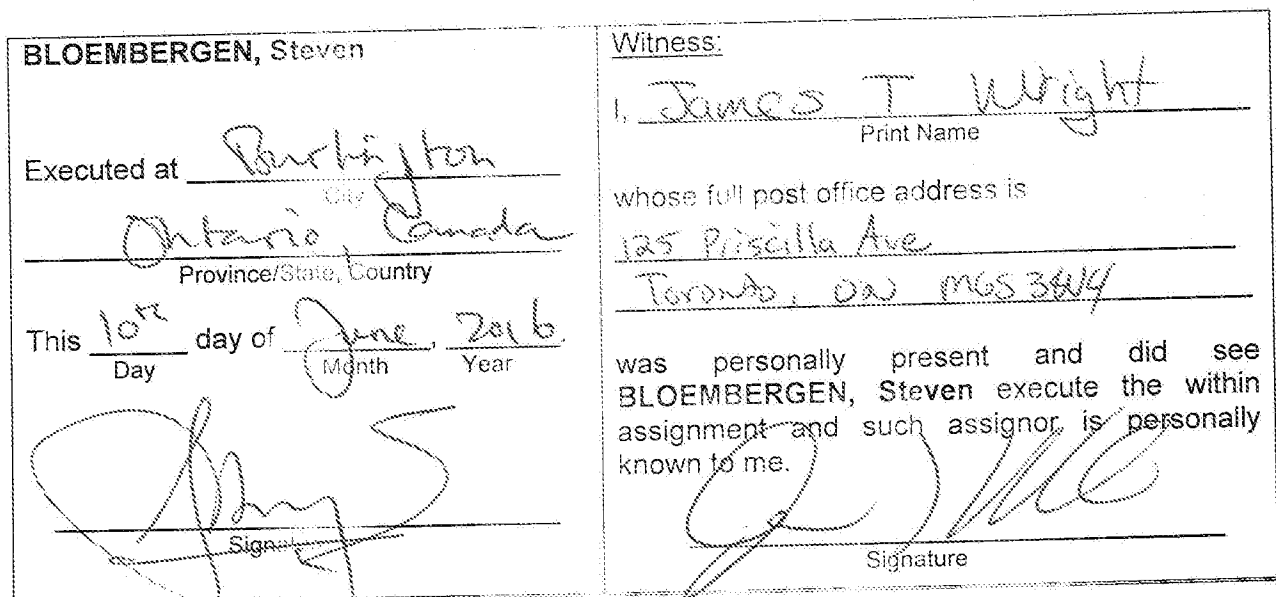 BLOEMBERGEN, Steven
Executed at Burlington
City
Ontario, Canada
Province/State, Country
This 10th day of June, 2016
Day Month Year
Signature
Witness:
I, James T Wright
Print Name
whose full post office address is
125 Priscilla Ave
Toronto, ON M6S 3W4
was personally present and did see
BLOEMBERGEN, Steven execute the within
assignment and such assignor is personally
known to me.
Signature